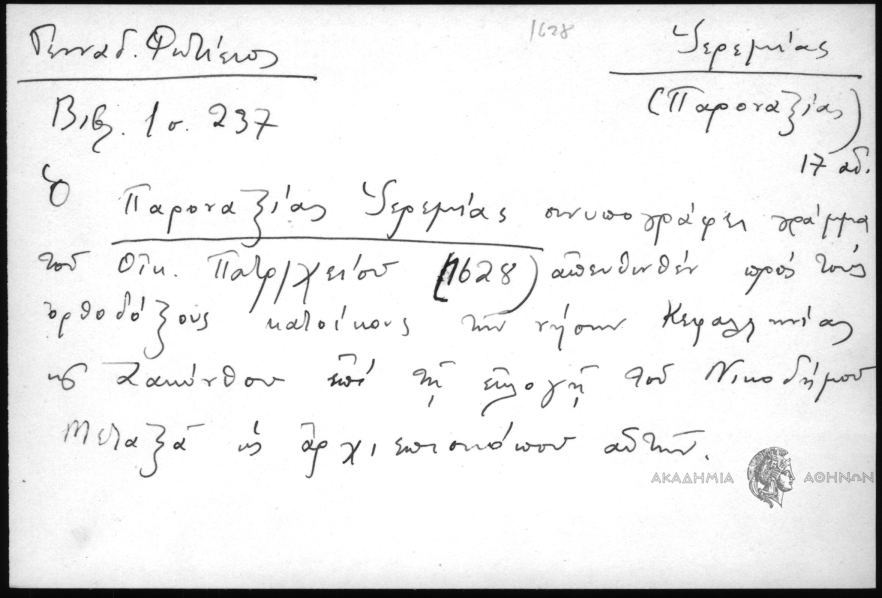 Γενναδ. Φωτίειος
1628
Ἱερεμίας
(Παροναξίας)
Βιβ. 1 σ. 237
17 αἰ.
Ὁ Παροναξίας Ἱερεμίας συνυπογράφει γράμμα
τοῦ Οἰκ. Πατρ/χείου (1628) ἀπευθυνθέν πρός τούς
ὀρθοδόξους κατοίκους τῶν νήσων Κεφαλληνίας
κ Ζακύνθου ἐπί τῇ ἐκλογῇ τοῦ Νικοδήμου
Μεταξᾶ ὡς ἀρχιεπισκόπου αὐτῶν.
ΑΚΑΔΗΜΙΑ ΑΘΗΝΩΝ